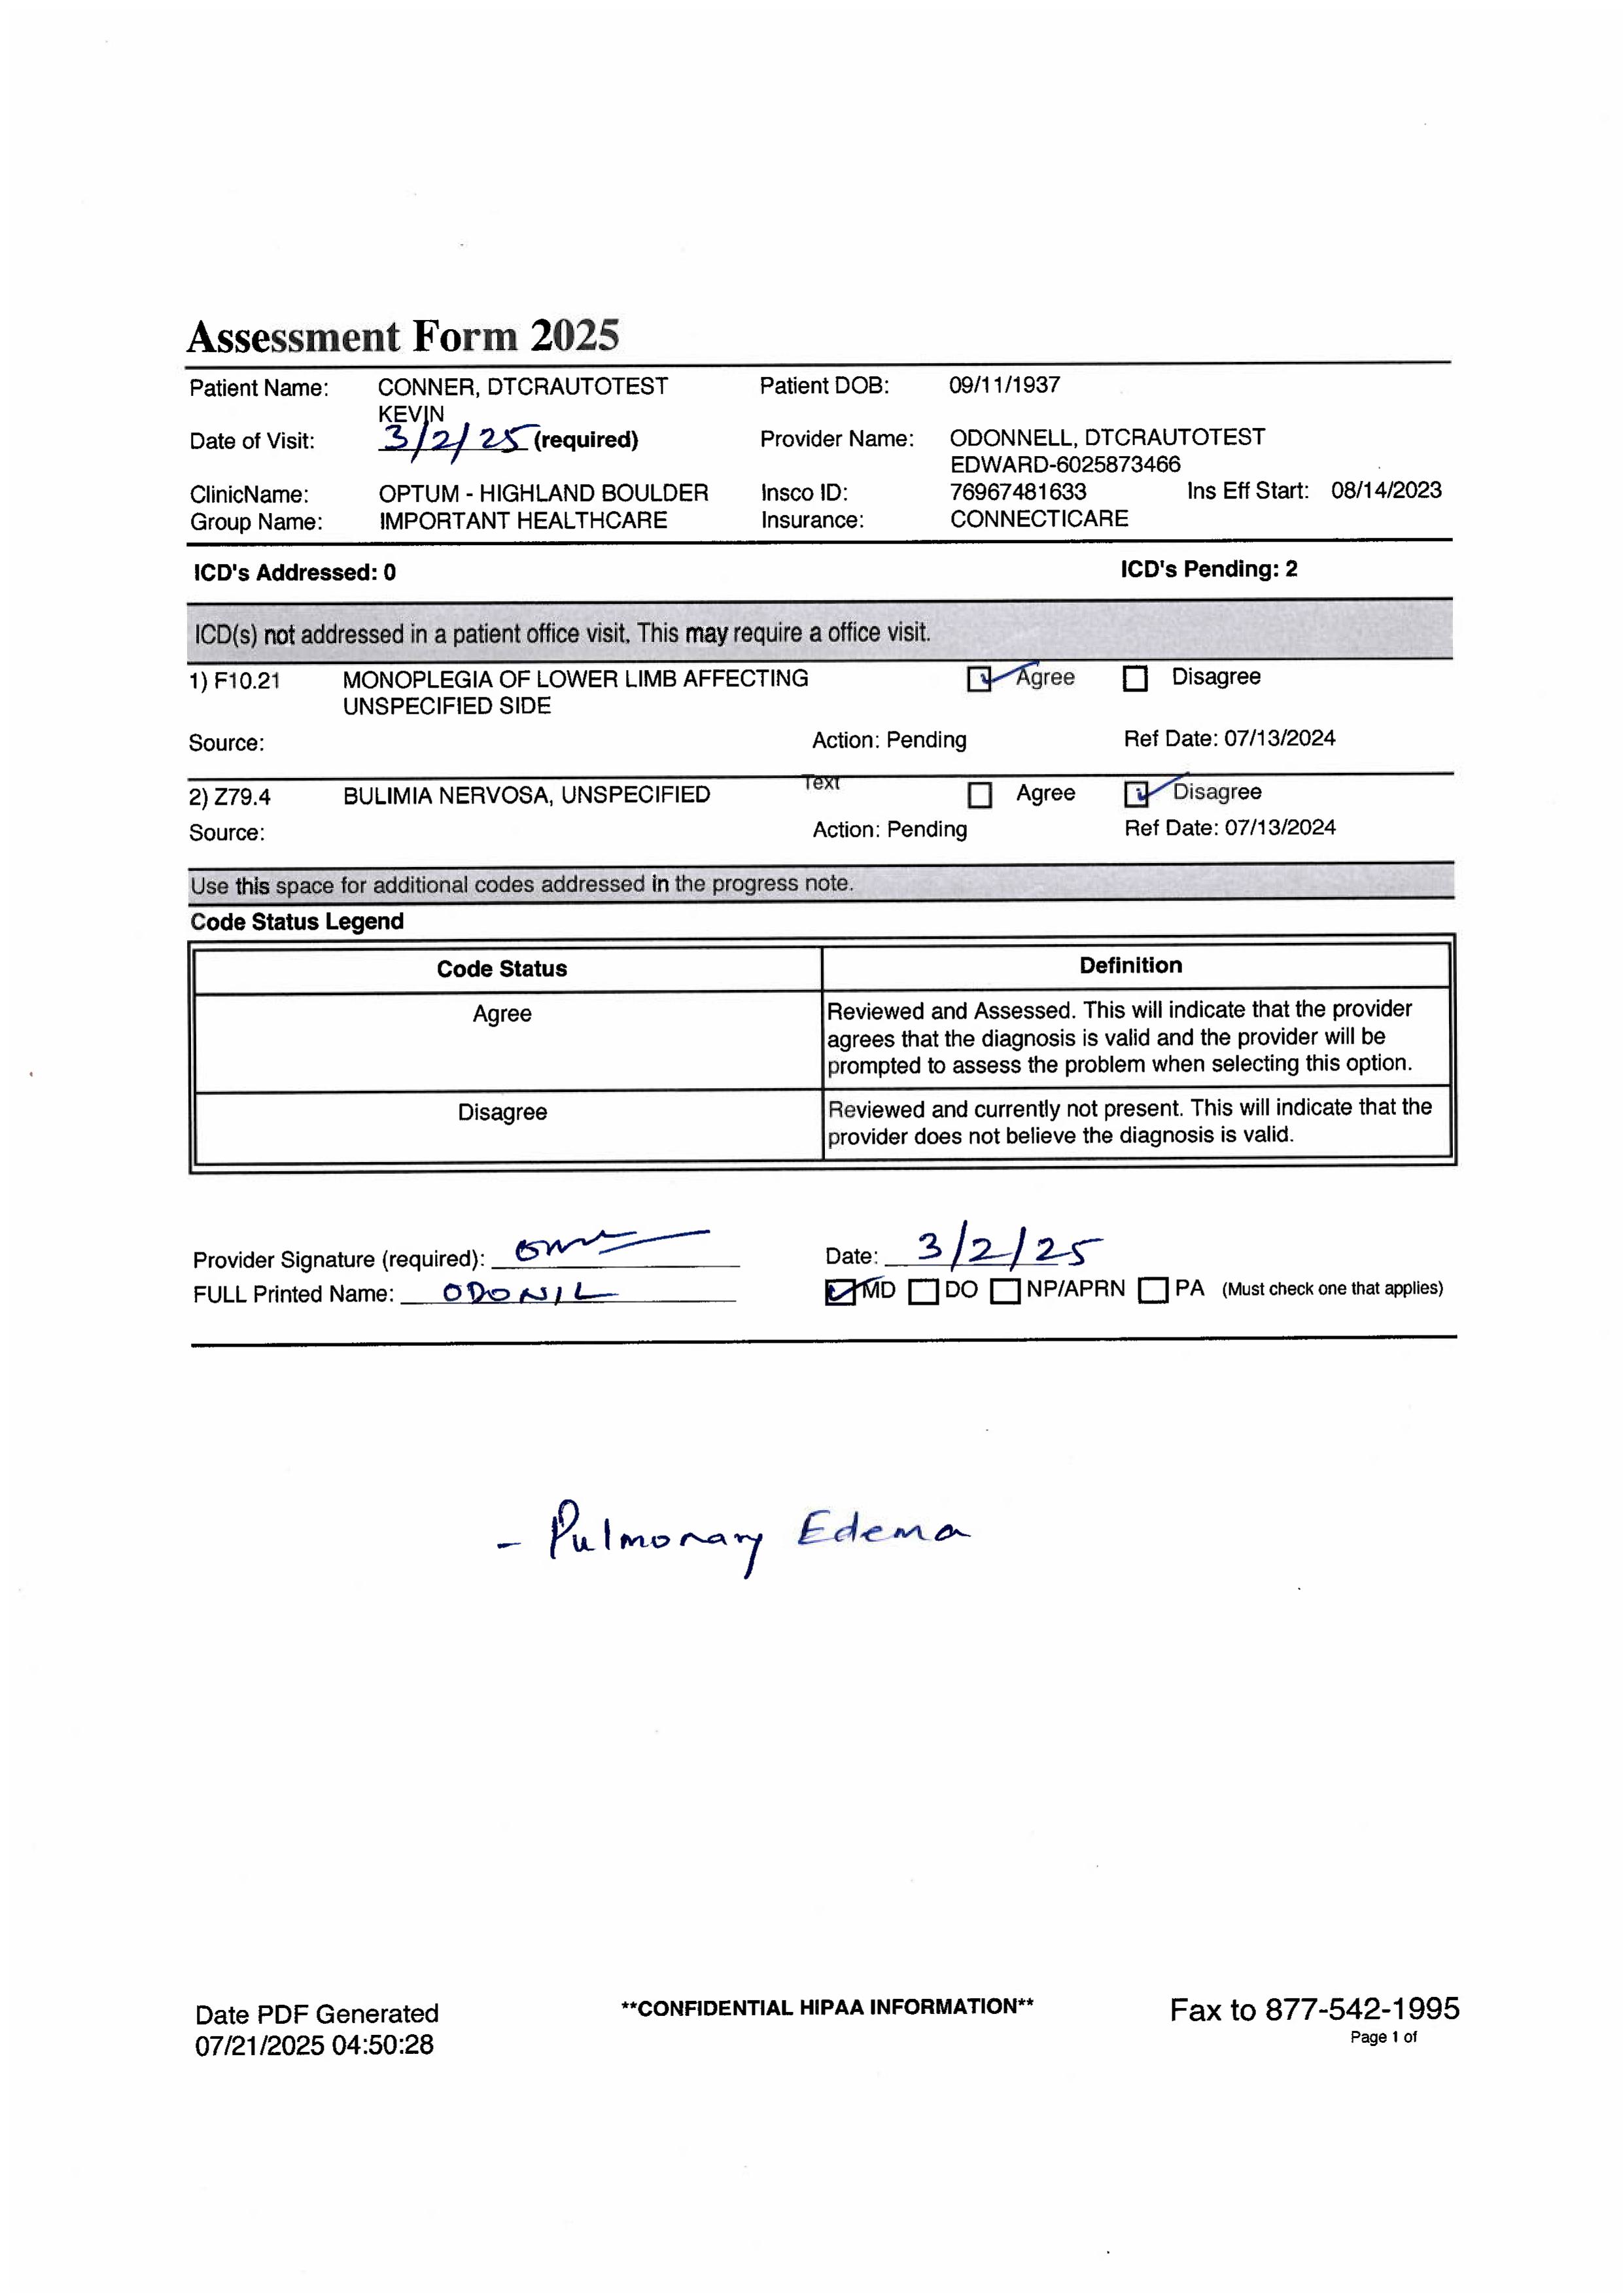 Assessment Form 2025
Patient Name: CONNER, DTCRAUTOTEST KEVIN Patient DOB: 09/11/1937
Date of Visit: 3/2/25 (required) Provider Name: ODONNELL, DTCRAUTOTEST EDWARD-6025873466
ClinicName: OPTUM - HIGHLAND BOULDER Insco ID: 76967481633 Ins Eff Start: 08/14/2023
Group Name: IMPORTANT HEALTHCARE Insurance: CONNECTICARE
ICD's Addressed: 0 ICD's Pending: 2
ICD(s) not addressed in a patient office visit. This may require a office visit.
1) F10.21 MONOPLEGIA OF LOWER LIMB AFFECTING UNSPECIFIED SIDE Agree Disagree
Source: Action: Pending Ref Date: 07/13/2024
Text
2) Z79.4 BULIMIA NERVOSA, UNSPECIFIED Agree Disagree
Source: Action: Pending Ref Date: 07/13/2024
Use this space for additional codes addressed in the progress note.
Code Status Legend
Code Status Definition
Agree Reviewed and Assessed. This will indicate that the provider
agrees that the diagnosis is valid and the provider will be
prompted to assess the problem when selecting this option.
Disagree Reviewed and currently not present. This will indicate that the
provider does not believe the diagnosis is valid.
Provider Signature (required): Date: 3/2/25
FULL Printed Name: ODONIL MD DO NP/APRN PA (Must check one that applies)
- Pulmonary Edema
Date PDF Generated **CONFIDENTIAL HIPAA INFORMATION** Fax to 877-542-1995
07/21/2025 04:50:28 Page 1 of